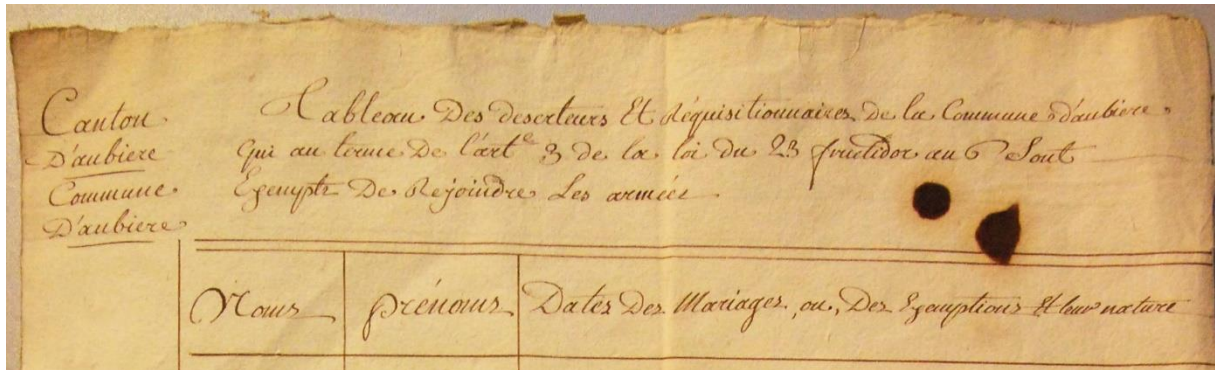 Canton
D'aubiere
Commune
D'aubiere
Tableau Des deserteurs Et Réquisitionnaires de la Commune d'aubiere
Qui au terme De l'art.e 3 de la loi du 23 fructidor an 6 Sont
Exempts De Rejoindre Les armées
Noms
prénoms
Dates Des Mariages, ou, Des Exemptions Et leur nature